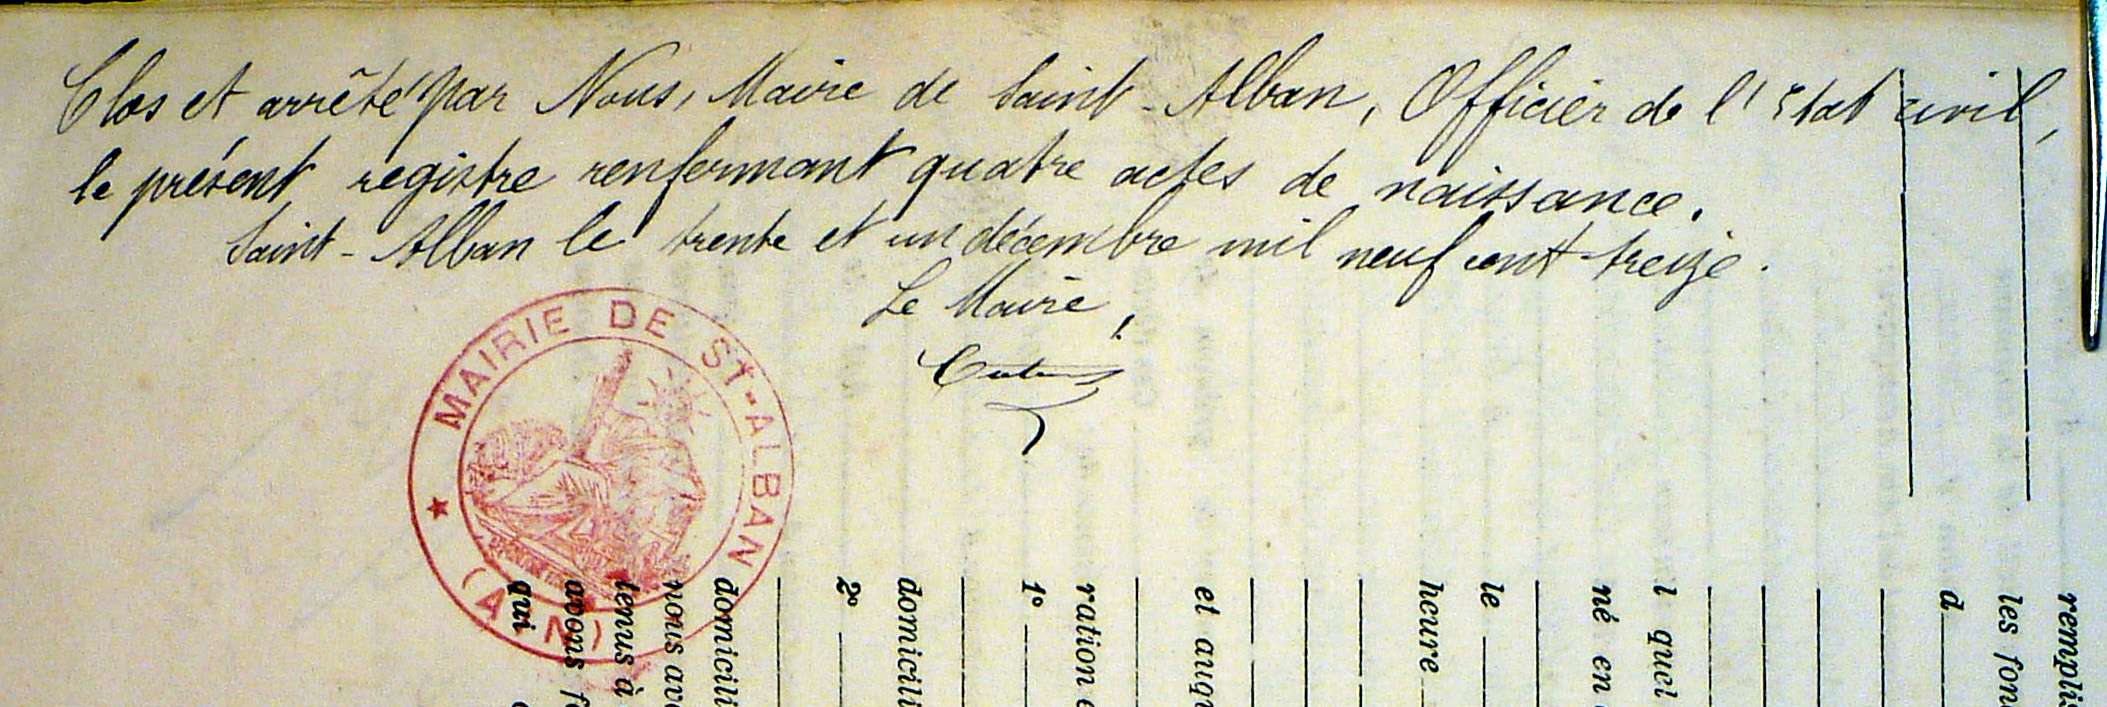 Clos et arrêté par Nous, Maire de Saint-Alban, Officier de l'Etat civil,
le présent registre renfermant quatre actes de naissance.
Saint-Alban le trente et un décembre mil neuf cent treize.
Le Maire,
MAIRIE DE ST-ALBAN
★ (AIN)
remplis
les fon
d
l quel
né en
le
heure
et auqu
ration
1o
domicili
2o
domicili
nous av
tenus à
avons f
qui